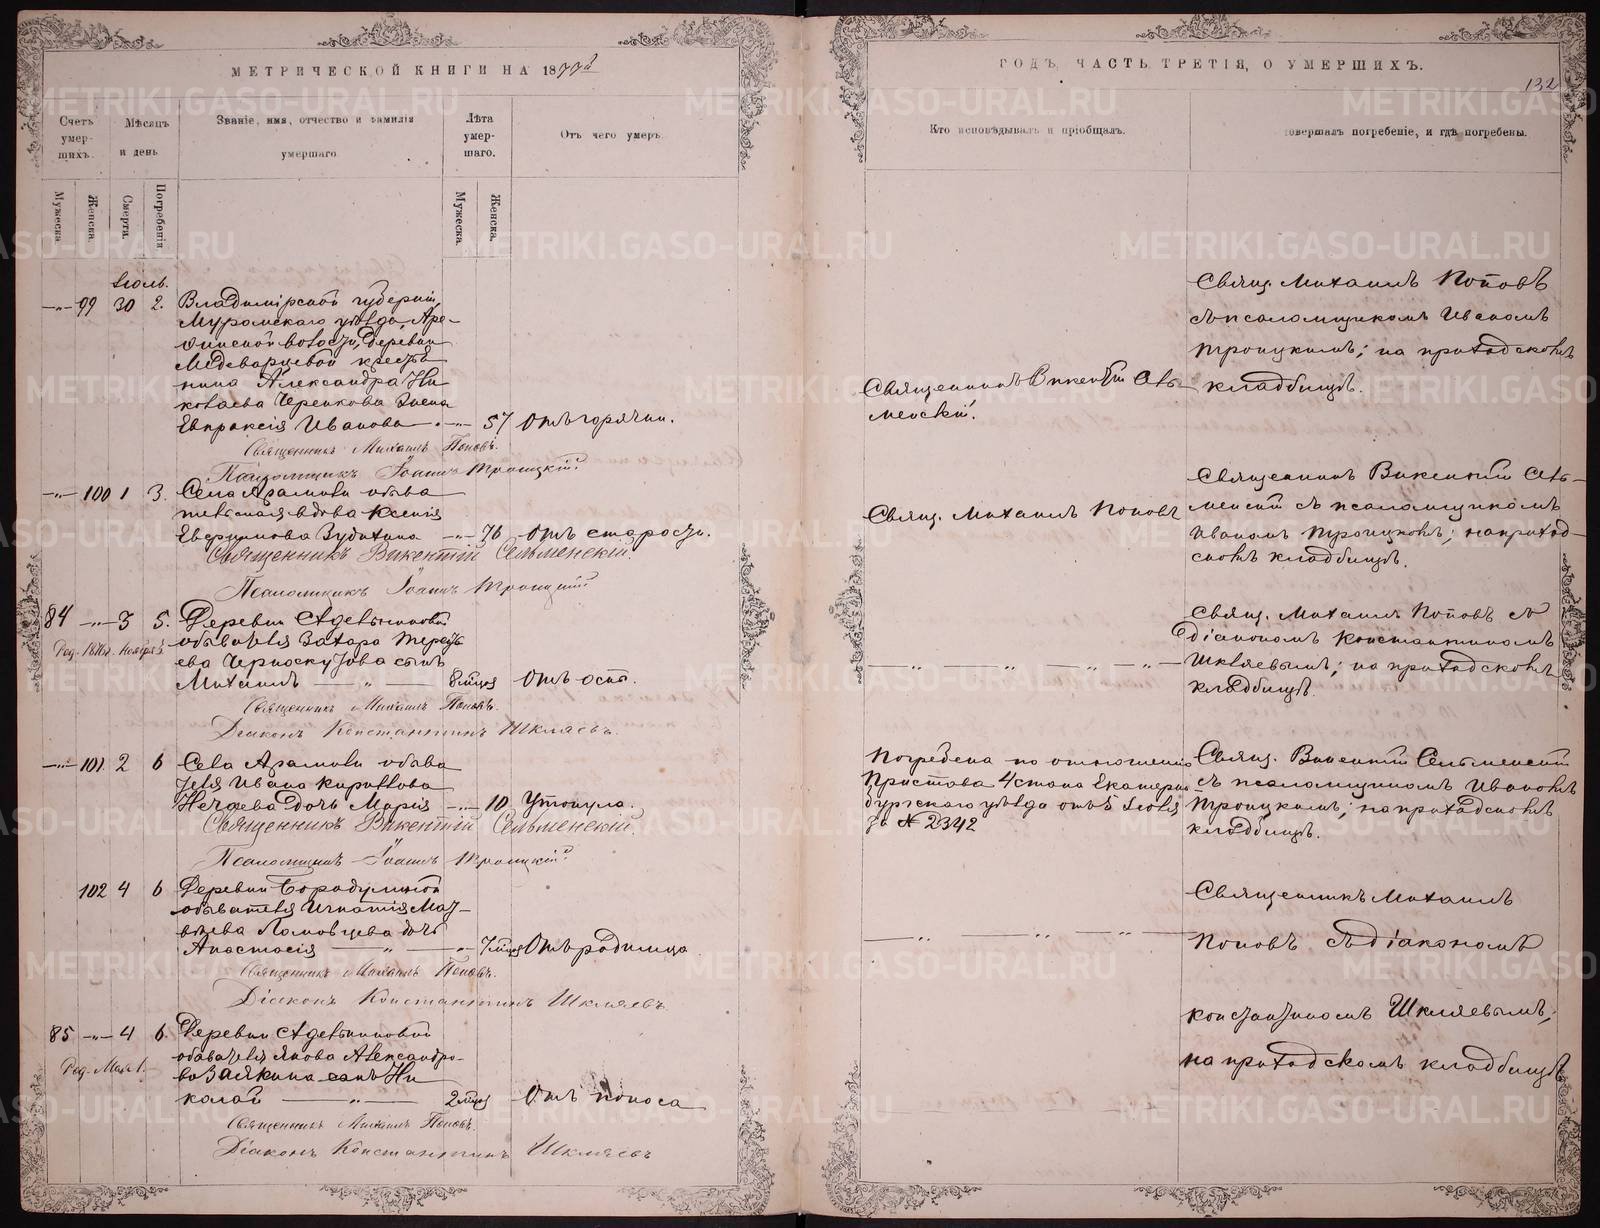 МЕТРИЧЕСКОЙ КНИГИ НА 1877й
ГОДЪ, ЧАСТЬ ТРЕТІЯ, О УМЕРШИХЪ.
132
Счетъ умер-шихъ.
Мѣсяцъ и день
Званіе, имя, отчество и фамилія умершаго
Лѣта умер-шаго.
Отъ чего умеръ.
Кто исповѣдывалъ и пріобщалъ.
совершалъ погребеніе, и гдѣ погребены.
Мужеска.
Женска.
Смерти.
Погребенія
Мужеска.
Женска.
Іюль.
99 30 2. Владимірской губерніи,
Муромскаго уѣзда, Аре-
финской волости, Деревни
крестья
нина Александра Ни
колаева Черенкова жена
Евпраксія Иванова 57 Отъ горячки.
Священникъ Викентій Сель-
менскій.
Свящ. Михаилъ Поповъ
съ псаломщикомъ Иваномъ
Троицкимъ; на приходскомъ
кладбищѣ.
Священникъ Михаилъ Поповъ.
Псаломщикъ Іоаннъ Троицкій
100 1 3. Села Арамили обыва
тельская вдова Ксенія
Евфимова Зубихина 76 Отъ старости.
Свящ. Михаилъ Поповъ
Священникъ Викентій Сель-
менскій съ псаломщикомъ
Иваномъ Троицкимъ; на приход-
скомъ кладбищѣ.
Священникъ Викентій Сельменскій.
Псаломщикъ Іоаннъ Троицкій
84 3 5. Деревни
Род. 1876. Ноября
обывателя Захара Терентье
ева Черноскутова сынъ
Михаилъ 8 мцов Отъ оспы.
Свящ. Михаилъ Поповъ съ
Діакономъ Константиномъ
Шкляевымъ; на приходскомъ
кладбищѣ.
Священникъ Михаилъ Поповъ.
Діаконъ Константинъ Шкляевъ.
101 2 6 Села Арамили обыва
теля Ивана Кириллова
Нечаева дочь Марія 10 Утонула.
Погребена по отношенію
Пристава 4 стана Екатерин
бургскаго уѣзда отъ 5 Іюля
за № 2342
Свящ. Викентій Сельменскій
съ псаломщикомъ Иваномъ
Троицкимъ; на приходскомъ
кладбищѣ.
Священникъ Викентій Сельменскій.
Псаломщикъ Іоаннъ Троицкій
102 4 6 Деревни Бородулиной
обывателя Игнатія Мат-
вѣева Ломовцева дочь
Анастасія 7 мцов Отъ родимца
Священникъ Михаилъ
Поповъ съ діакономъ
Константиномъ Шкляевымъ;
на приходскомъ кладбищѣ
Священникъ Михаилъ Поповъ.
Діаконъ Константинъ Шкляевъ.
85 4 6. Деревни
Род. Мая 1.
обывателя Якова Александро-
ва Заякина сынъ Ни
колай 2 мцов Отъ поноса
Священникъ Михаилъ Поповъ.
Діаконъ Константинъ Шкляевъ
METRIKI.GASO-URAL.RU